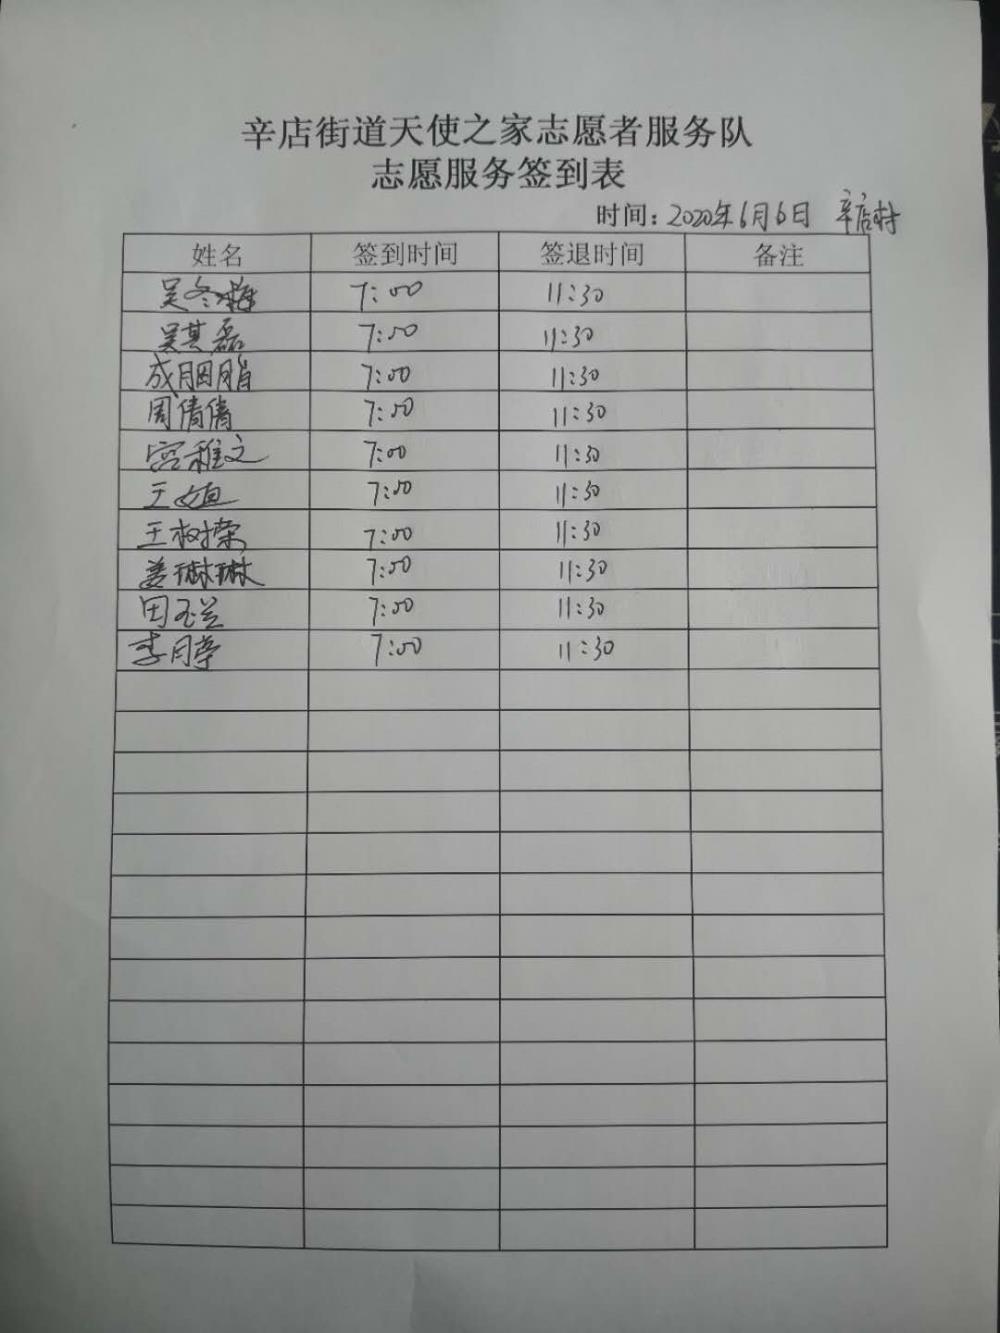 辛店街道天使之家志愿者服务队
志愿服务签到表
时间：2020年6月6日 辛店村
姓名 签到时间 签退时间 备注
吴冬梅 7:00 11:30
吴其磊 7:00 11:30
成胭脂 7:00 11:30
周倩倩 7:00 11:30
宫雅文 7:00 11:30
王 7:00 11:30
王树荣 7:00 11:30
姜琳琳 7:00 11:30
田玉兰 7:00 11:30
李月亭 7:00 11:30